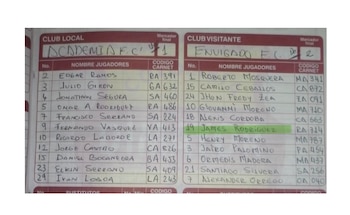 CLUB LOCAL
Marcador final
ACADEMIA F.C. 1
No. NOMBRE JUGADORES CODIGO CARNET
2 EDGAR RAMOS RA 391
3 JULIO GIRON GA 632
4 JONATHAN SEGURA SA 460
OMAR A RODRIGUEZ RA 486
7 FRANCISCO SERRANO SA 224
9 FERNANDO VASQUEZ VA 413
RICARDO LA 271
12 JORGE CASTRO CA 826
15 DANIEL BOCANEGRA BA 433
23 ELKIN SERRANO SA 409
29 IVAN LOBOA LA 243
CLUB VISITANTE
Marcador final
ENVIGADO F.C. 2
No. NOMBRE JUGADORES CODIGO CARNET
1 ROBERTO MOSQUERA MA 341
15 CAMILO CEBALLOS CA
24 JHON FREDY
10 GIOVANNI MORENO MA
18 ALEXIS CORDOBA CA
JAMES RODRIGUEZ RA 724
5 HENRY MORENO MA
JAIRO PALOMINO PA
6 ORMEDIS MADERA MA 437
21 SANTIAGO SILVERA SA
7 ALEXANDER ORREGO OA